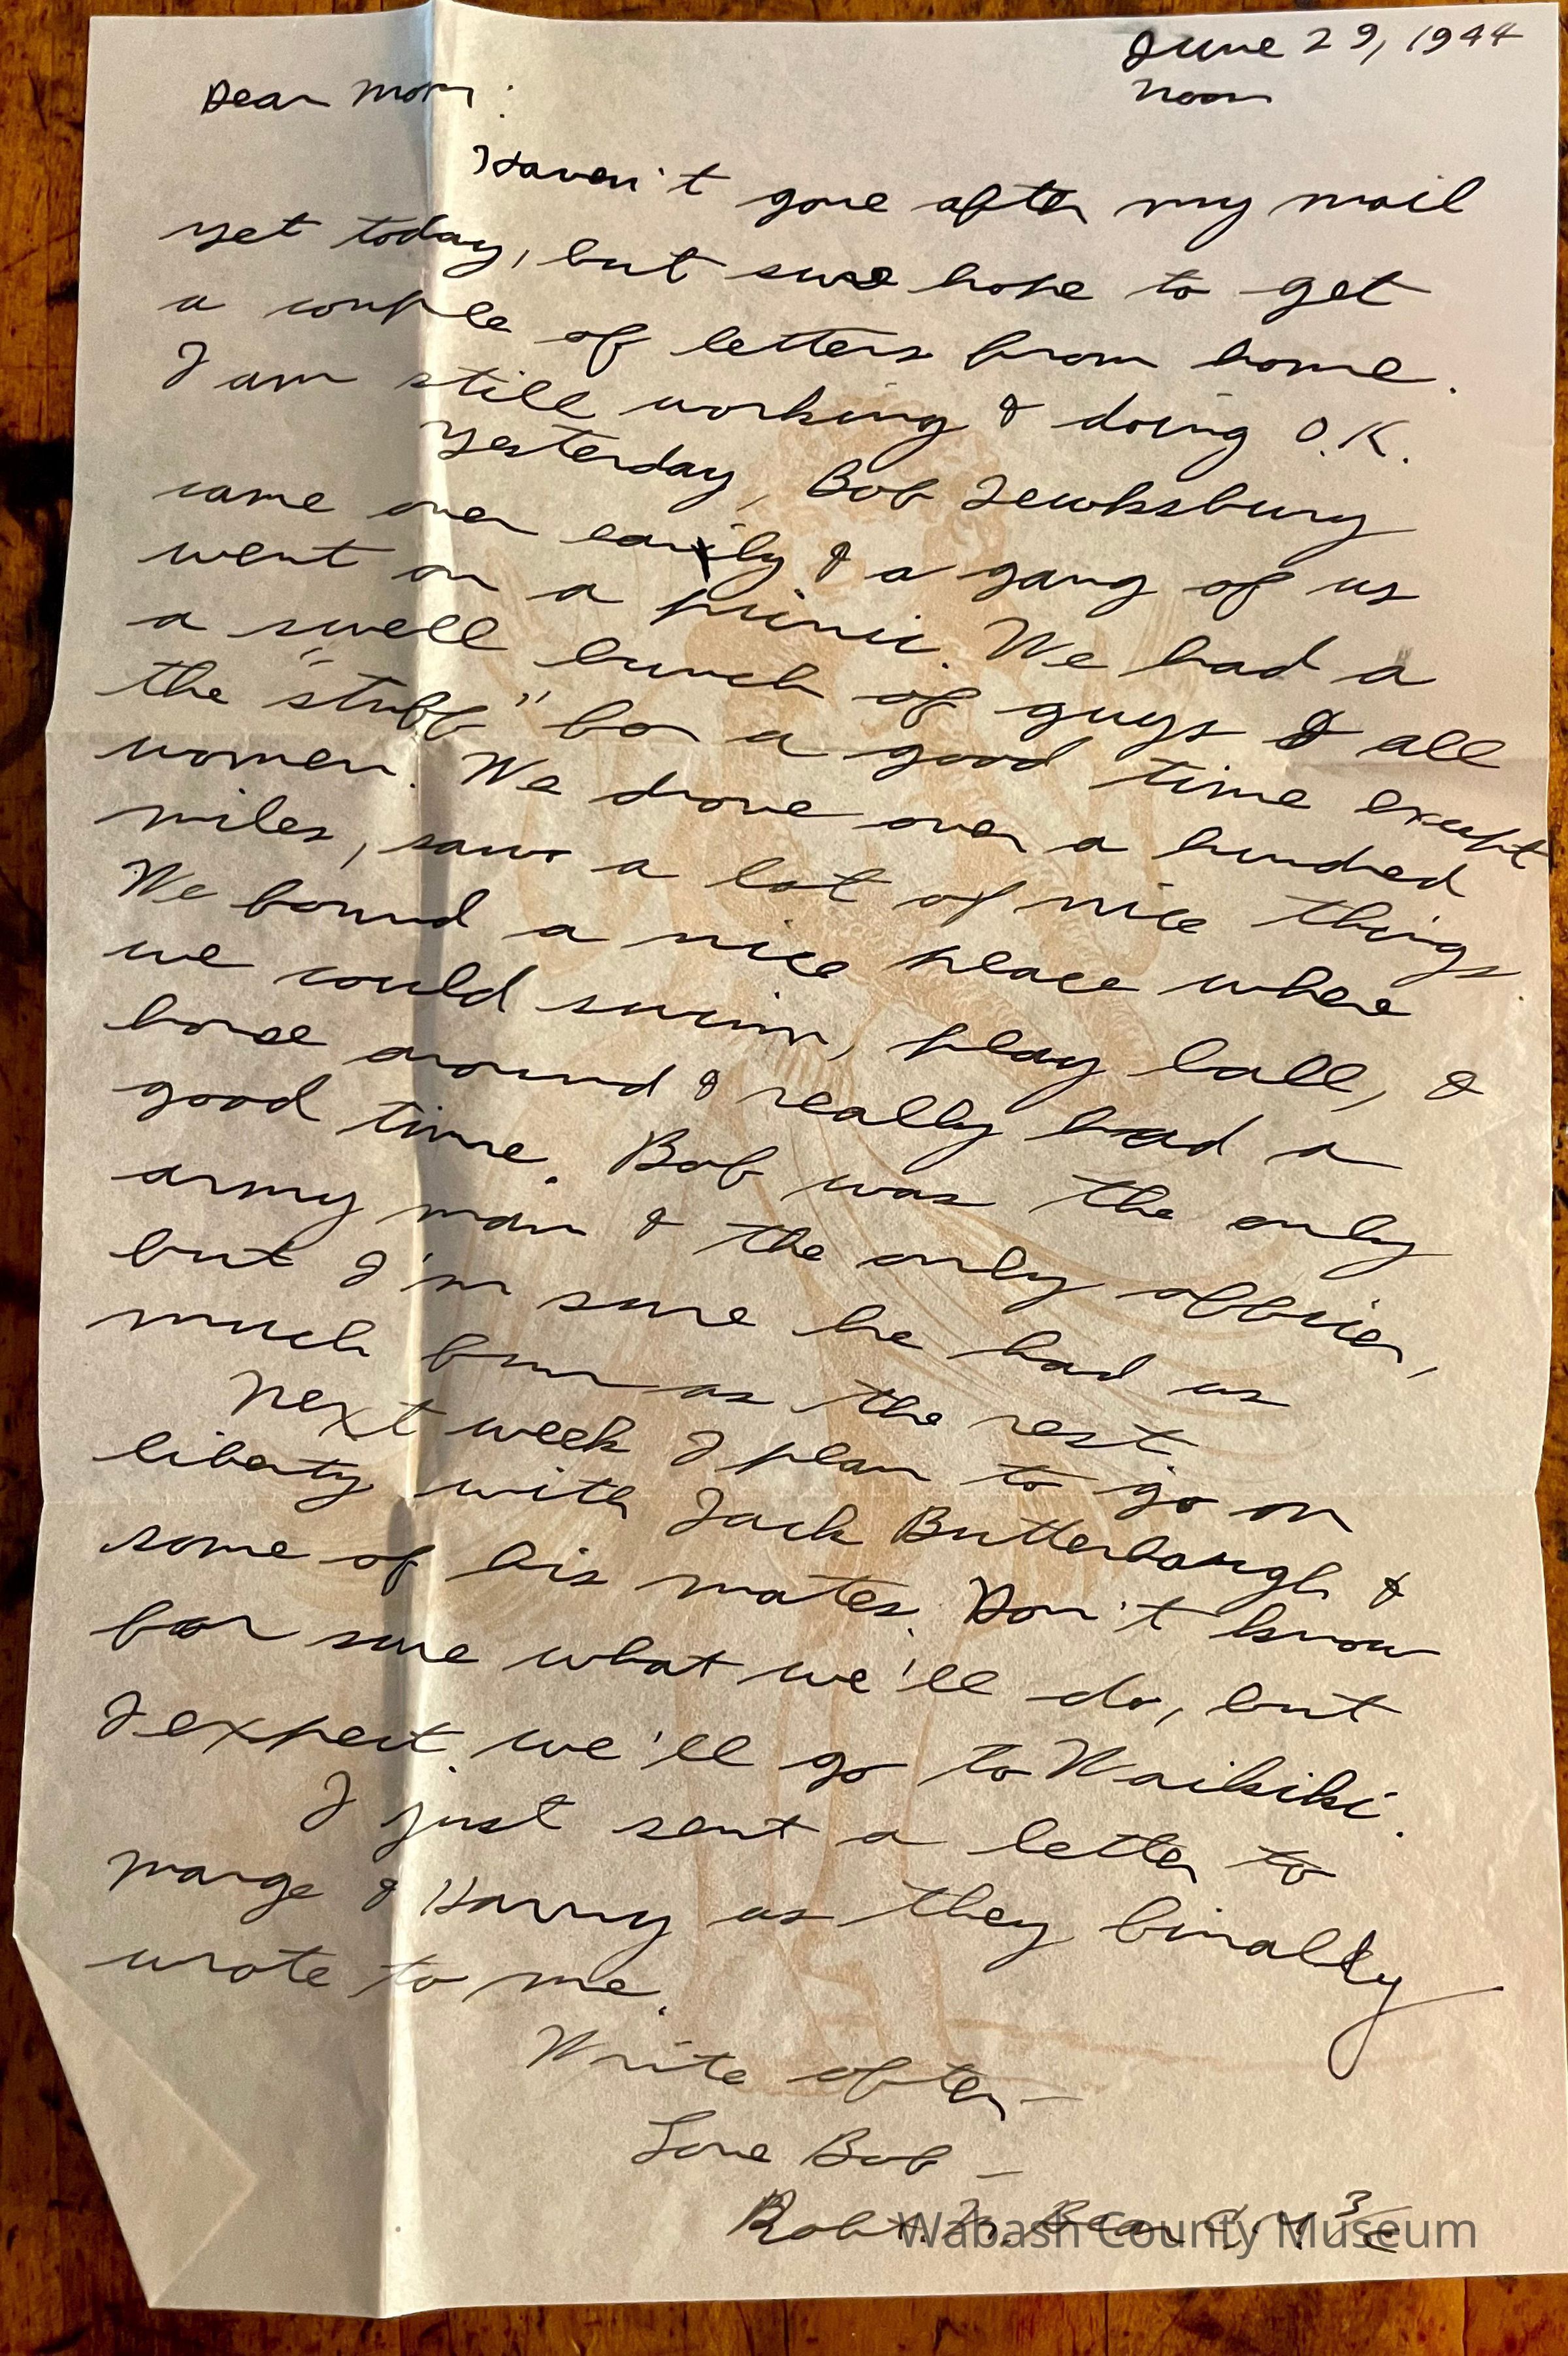 June 29, 1944
Noon
Dear Mom:
Haven't gone after my mail
yet today, but sure hope to get
a couple of letters from home.
I am still working & doing O.K.
Yesterday, Bob Tewksbury
came over early & a gang of us
went on a picnic. We had a
a swell bunch of guys & all
the "stuff" for a good time except
women. We drove over a hundred
miles, saw a lot of nice things.
We found a nice place where
we could swim, play ball, &
horse around & really had a
good time. Bob was the only
army man & the only officer,
but I'm sure he had as
much fun as the rest.
Next week I plan to go on
liberty with Jack Butterbaugh &
some of his mates. Don't know
for sure what we'll do, but
I expect we'll go to Waikiki.
I just sent a letter to
Marge & Harry as they finally
wrote to me.
Write often –
Love Bob –
Robt.
Wabash County Museum